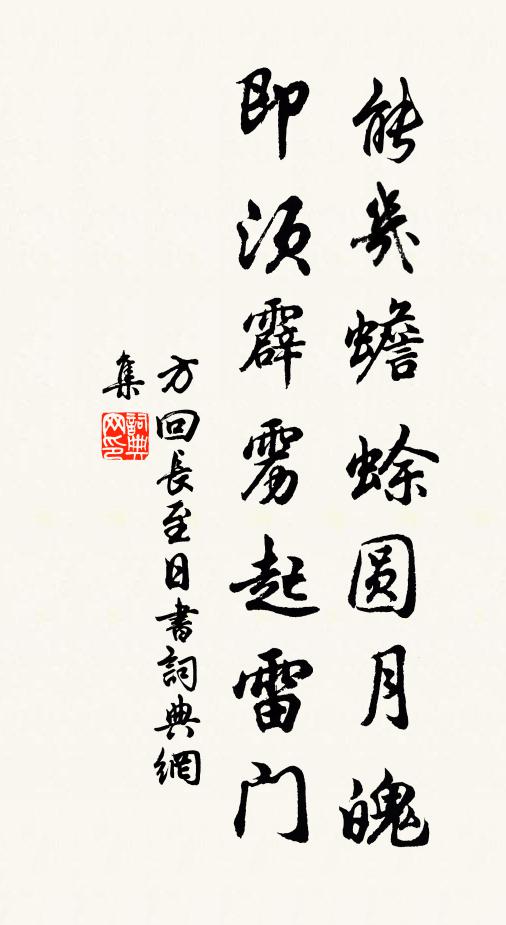 能几蟾蜍圆月魄
即须霹雳起雷门
方回长至日書詞典網
集
詞典
网印